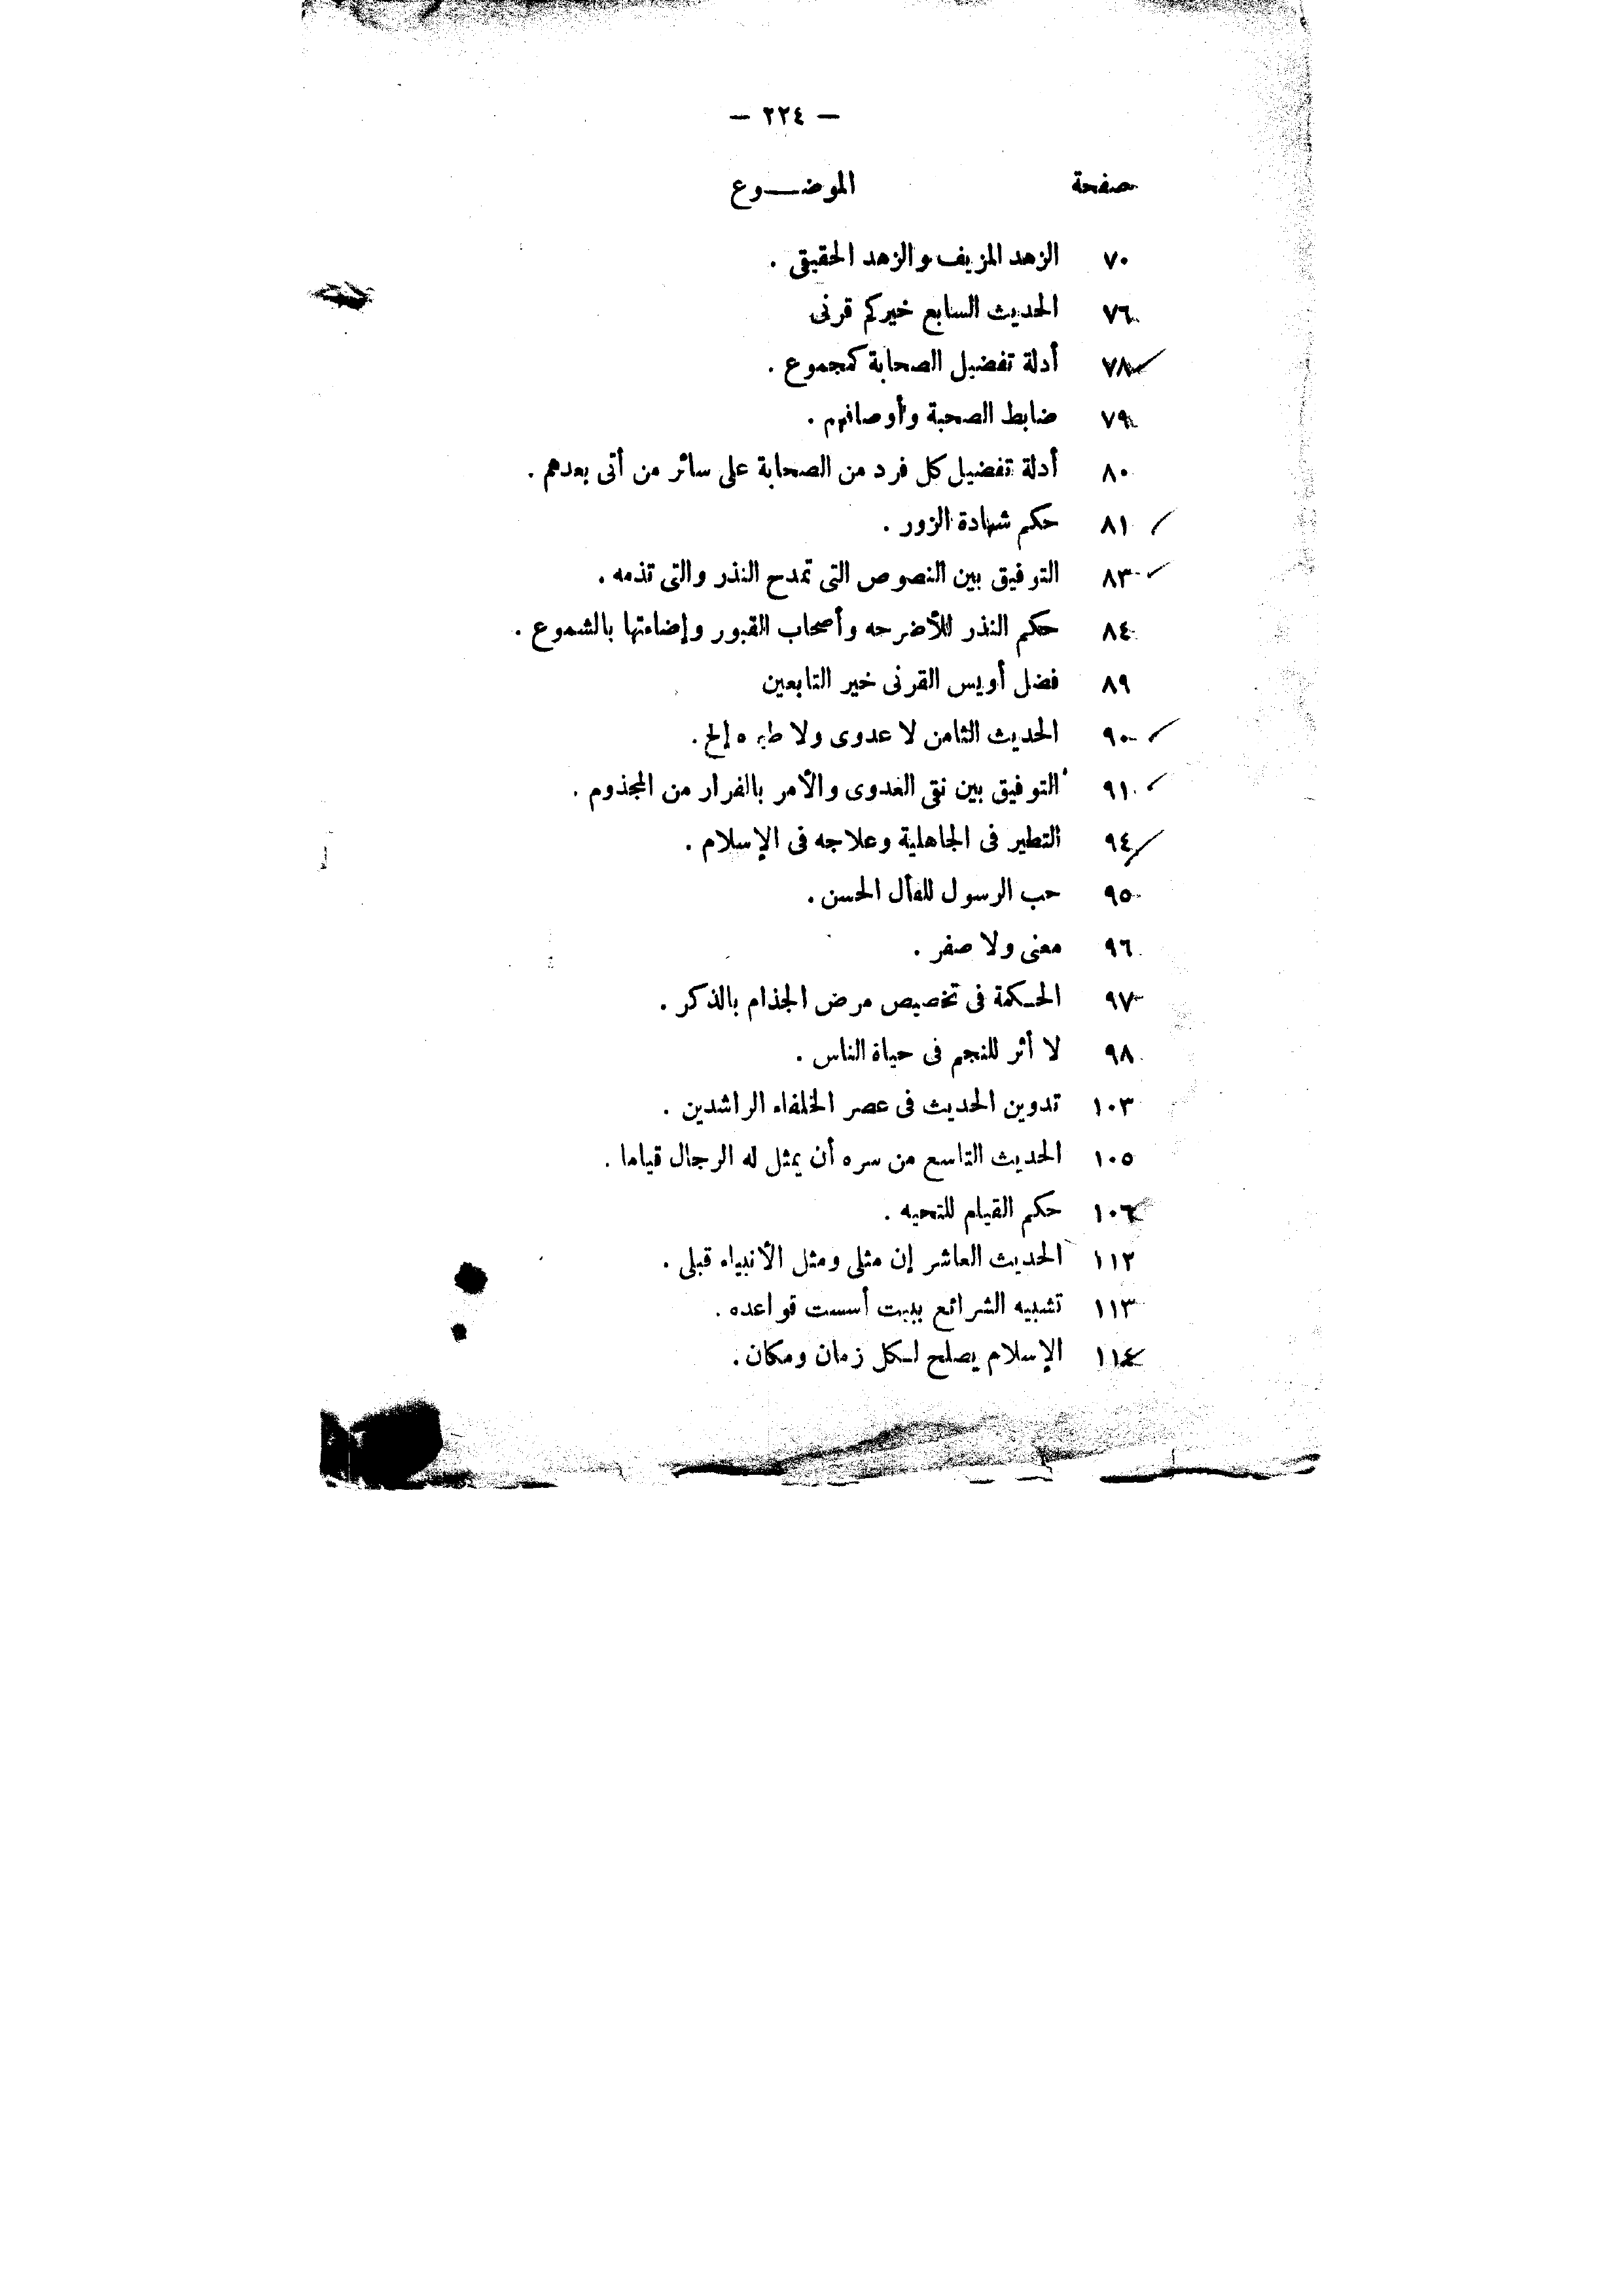 — ٢٢٤ —
صفحة الموضـــوع
٧٠ الزهد المزيف والزهد الحقيقى .
٧٦ الحديث السابع خيركم قرنى
٧٨ أدلة تفضيل الصحابة كمجموع .
٧٩ ضابط الصحبة وأوصافهم .
٨٠ أدلة تفضيل كل فرد من الصحابة على سائر من أتى بعدهم .
٨١ حكم شهادة الزور .
٨٣ التوفيق بين النصوص التى تمدح النذر والتى تذمه .
٨٤ حكم النذر للأضرحه وأصحاب القبور وإضاءتها بالشموع .
٨٩ فضل أويس القرنى خير التابعين
٩٠ الحديث الثامن لا عدوى ولا إلخ .
٩١ التوفيق بين نفى العدوى والأمر بالفرار من المجذوم .
٩٤ التطير فى الجاهلية وعلاجه فى الإسلام .
٩٥ حب الرسول للفأل الحسن .
٩٦ معنى ولا صفر .
٩٧ الحـكمة فى تخصيص مرض الجذام بالذكر .
٩٨ لا أثر للنجم فى حياة الناس .
١٠٣ تدوين الحديث فى عصر الخلفاء الراشدين .
١٠٥ الحديث التاسع من سره أن يمثل له الرجال قياما .
١٠٦ حكم القيام للتحيه .
١١٢ الحديث العاشر إن مثلى ومثل الأنبياء قبلى .
١١٣ تشبيه الشرائع ببيت أسست قواعده .
١١٤ الإسلام يصلح لـكل زمان ومكان .